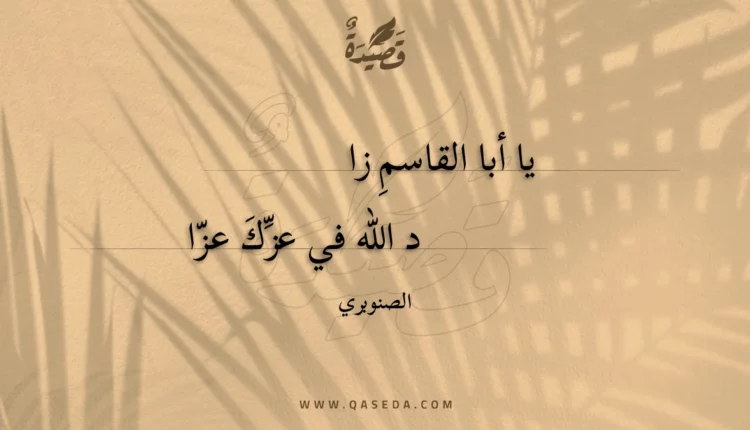 قَصِيْدَةٌ
يا أبا القاسمِ زا
د الله في عزِّكَ عزّا
الصنوبري
WWW.QASEDA.COM